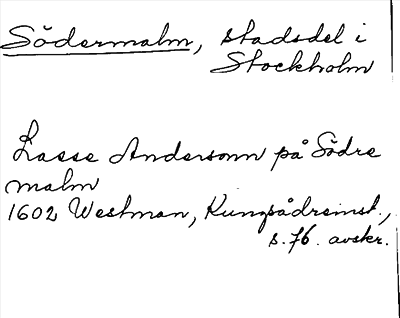 Södermalm, stadsdel i
Stockholm
Lasse Andersonn på Södre
malm
1602 Westman, Kungsådreinst.,
s. 76. avskr.